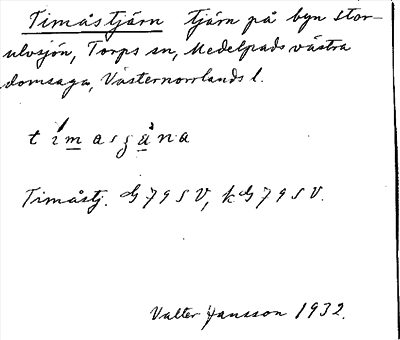 Timåstjärn tjärn på byn Stor-
ulvsjön, Torps sn, Medelpads västra
domsaga, Västernorrlands l.
Timåstj. G 79 S V, kG 79 S V.
Valter Jansson 1932.